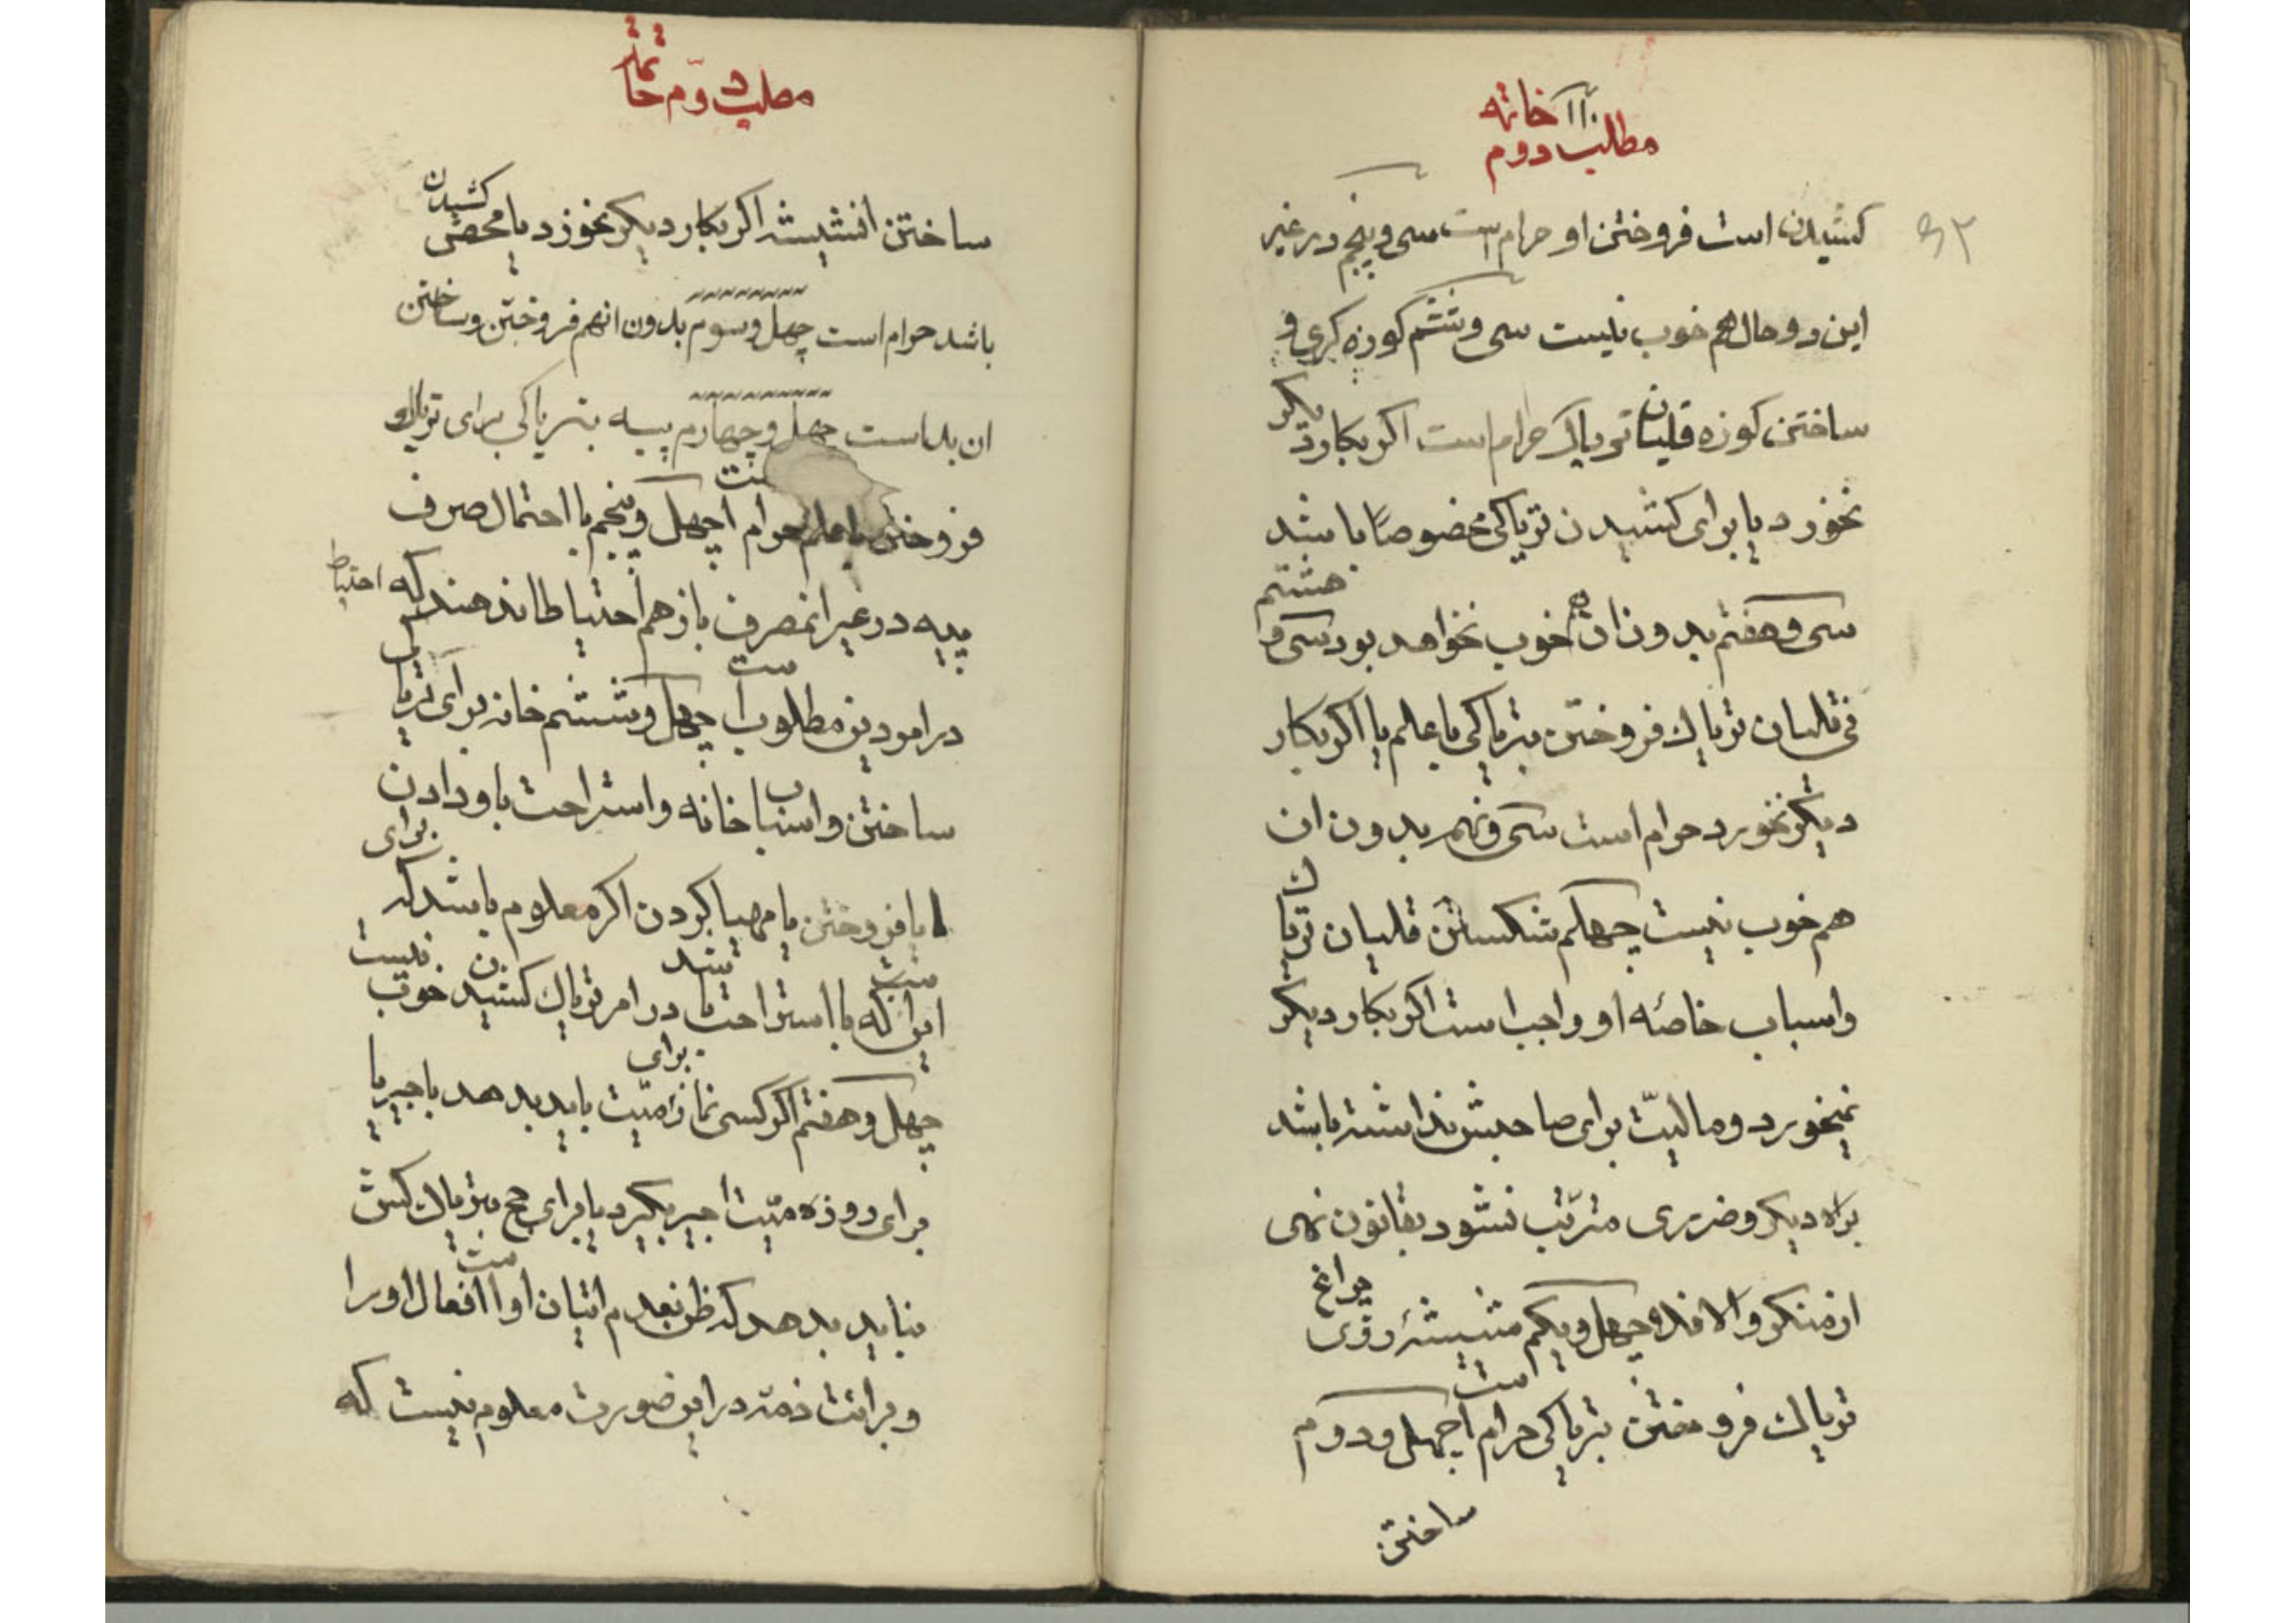 خاتمه
مطلب دوم
۹۳
کشیدن است فروختن او حرام است سی و پنجم در غیر
این دو حال هم خوب نیست سی و ششم کوزه کری و
ساختن کوزه قلیان تریاک حرام است اکر بکار دیکر
نخورد یا برای کشیدن تریاکی خصوصاً باشد
سی و هفتم بدون ان هم خوب نخواهد بود سی و هشتم
نی قلیان تریاک فروختن بتریاکی با علم یا اکر بکار
دیکر نخورد حرام است سی و نهم بدون ان
هم خوب نیست چهلم شکستن قلیان تریاک
و اسباب خاصّه او واجب است اکر بکار دیکر
نمیخورد و مالیّت برای صاحبش نداشته باشد
براه دیکر و ضرری مترتّب نشود بقانون نهی
از منکر و الا فلا چهل و یکم شیشهٔ روی چراغ
تریاک فروختن بتریاکی حرام است چهل و دوم
ساختن
مطلب دوّم خاتمه
ساختن انشیشه اکر بکار دیکر نخوزد یا محض کشیدن
باشد حرام است چهل و سوم بدون انهم فروختن و ساختن
ان بد است چهل و چهارم پیه بتریاکی برای تریاک
فروختن با علم حرام است چهل و پنجم با احتمال صرف
پیه در غیر انمصرف باز هم احتیاطا ندهند که احتیاط
در امور دین مطلوب است چهل و ششم خانه برای تریاکی
ساختن و اسباب خانه و استراحت باو دادن
یا فروختن یا مهیا کردن اکر معلوم باشد که برای
اینست که با استراحت باشد در امر تریاک کشیدن خوب نیست
چهل و هفتم اکر کسی نماز برای میّت باید بدهد باجیر یا
برای روزه میّت اجیر بکیرد یا برای حج بتریاک کش
نباید بدهد که ظن بعدم اتیان او است افعال او را
و برائت ذمّه در این صورت معلوم نیست که